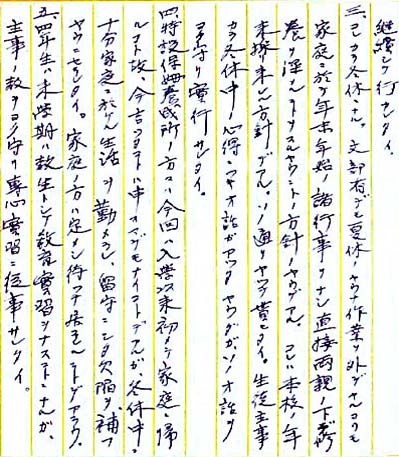 継続シテ行サレタイ。
三、コレカラ冬休ミトナル。文部省デモ夏休ノヤウナ作業ヲ外デナルコトモ
家庭ニ於テ年末年始ノ諸行事ヲナシ直接両親ノ下デ修
養ヲ深ムルトナルヤウニトノ方針ノヤウデアル。コレハ本校ノ年
来採来レル方針デアル。ソノ通リヤツテ貰ヒタイ。生徒主事
カラ冬休中ノ心得ニツキオ話ガアツタヤウダガソノオ話ヲ
ヨク守リ実行サレタイ。
四、特設保姆養成所ノ方々ハ今回ハ入学以来初メテ家庭ニ帰
ルコト故、今言ツタコトハ申スマデモナイコトデアルガ、冬休中ハ
十分家庭ニ於ケル生活ヲ勤メラレ、留守ニシタ欠陥ヲ補フ
ヤウニセラレタイ。家庭ノ方ハ定メシ待ツテ居ラレルコトデアラウ。
五、四年生ハ来学期ハ教生トシテ教育実習ヲナスコトトナルガ、
主事ノ教ヲヨク守リ専心実習ニ従事サレタイ。